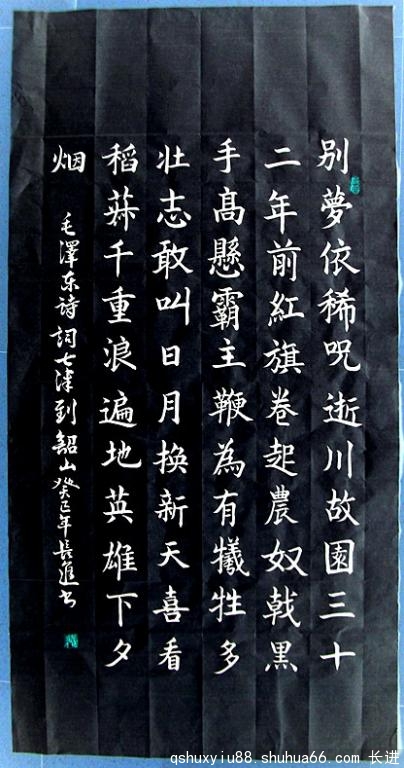 别夢依稀咒逝川故園三十
二年前紅旗卷起農奴戟黑
手高懸霸主鞭為有犧牲多
壯志敢叫日月换新天喜看
稻菽千重浪遍地英雄下夕
烟
毛澤东诗詞七律到韶山癸巳年長進书
qshuxyiu88.shuhua66.com 长进